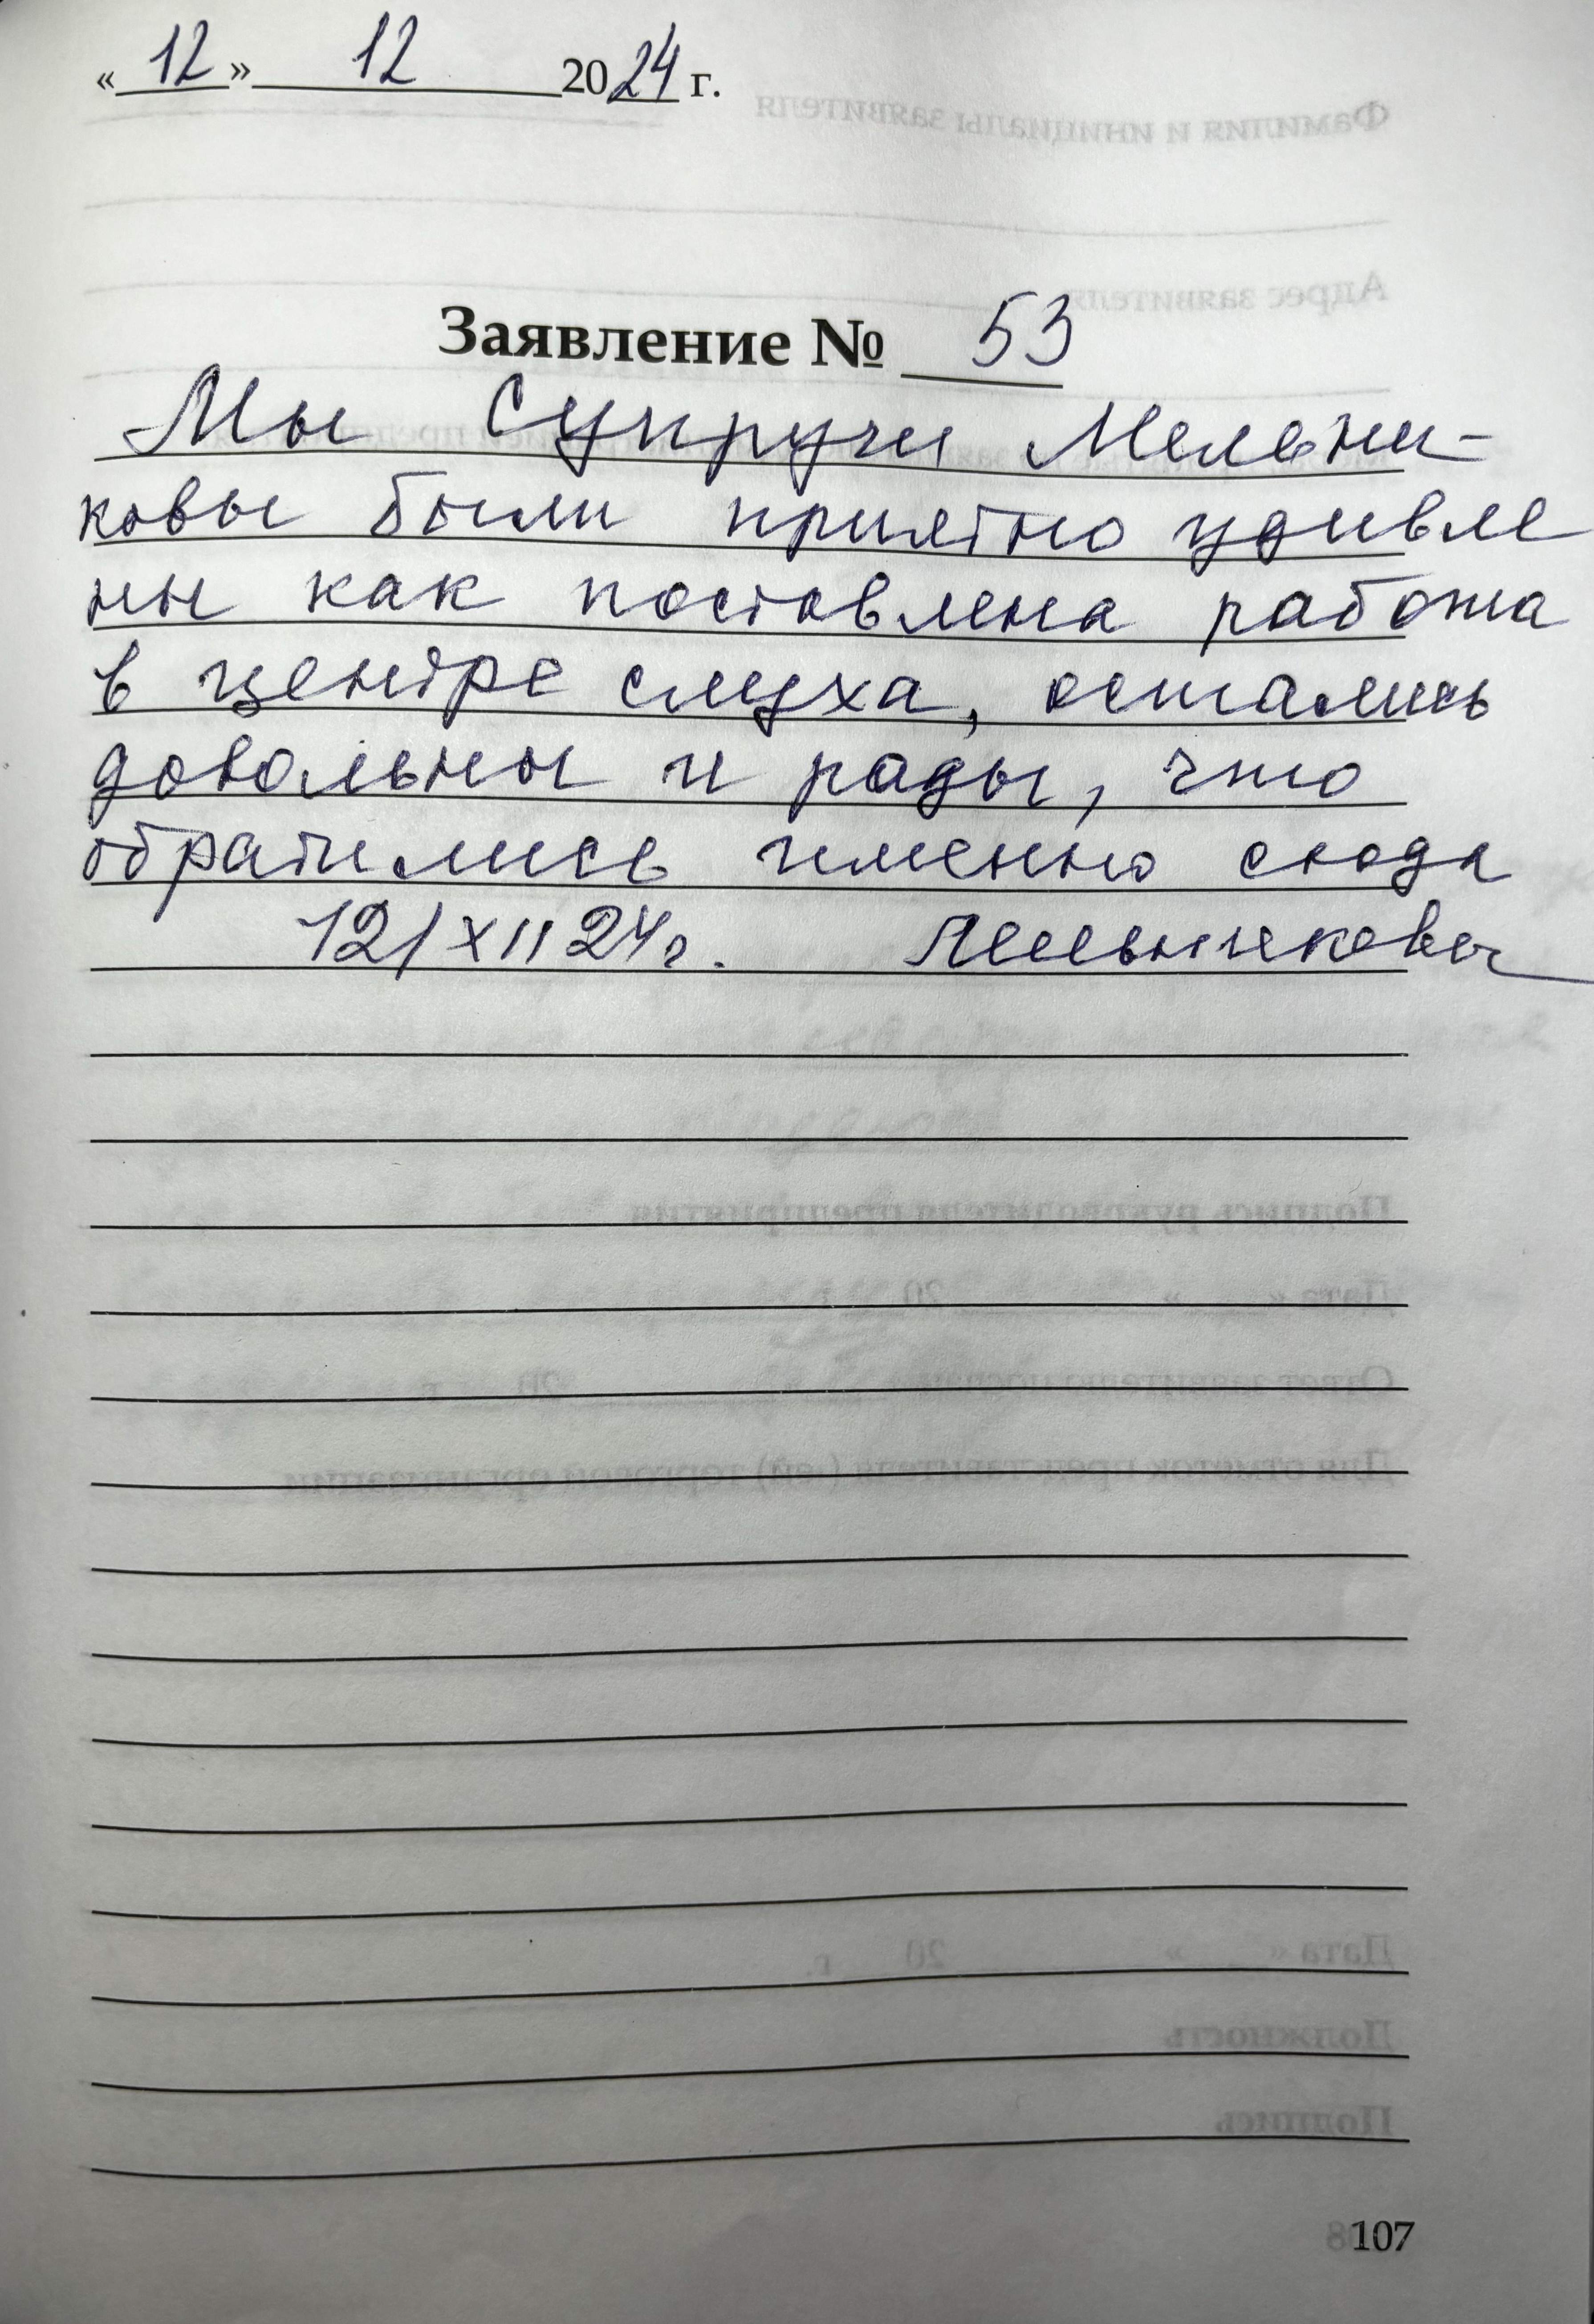 «12» 12 2024 г.
Заявление № 53
Мы Супруги Мельни-
ковы были приятно удивле
ны как поставлена работа
в центре слуха, остались
довольны и рады, что
обратились именно сюда
12/XII 24г. Мельниковы
107